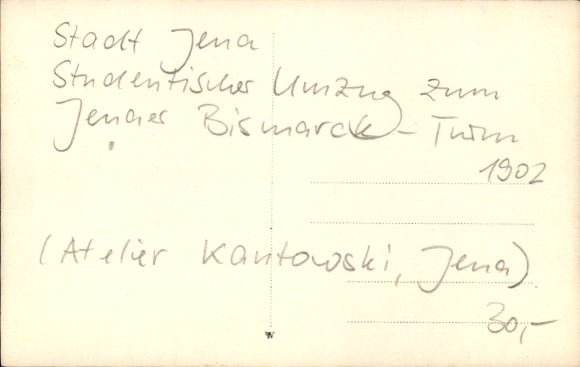 Stadt Jena
Studentischer Umzug zum
Jenaer Bismarck-Turm
1902
(Atelier Kantowski, Jena)
30,-